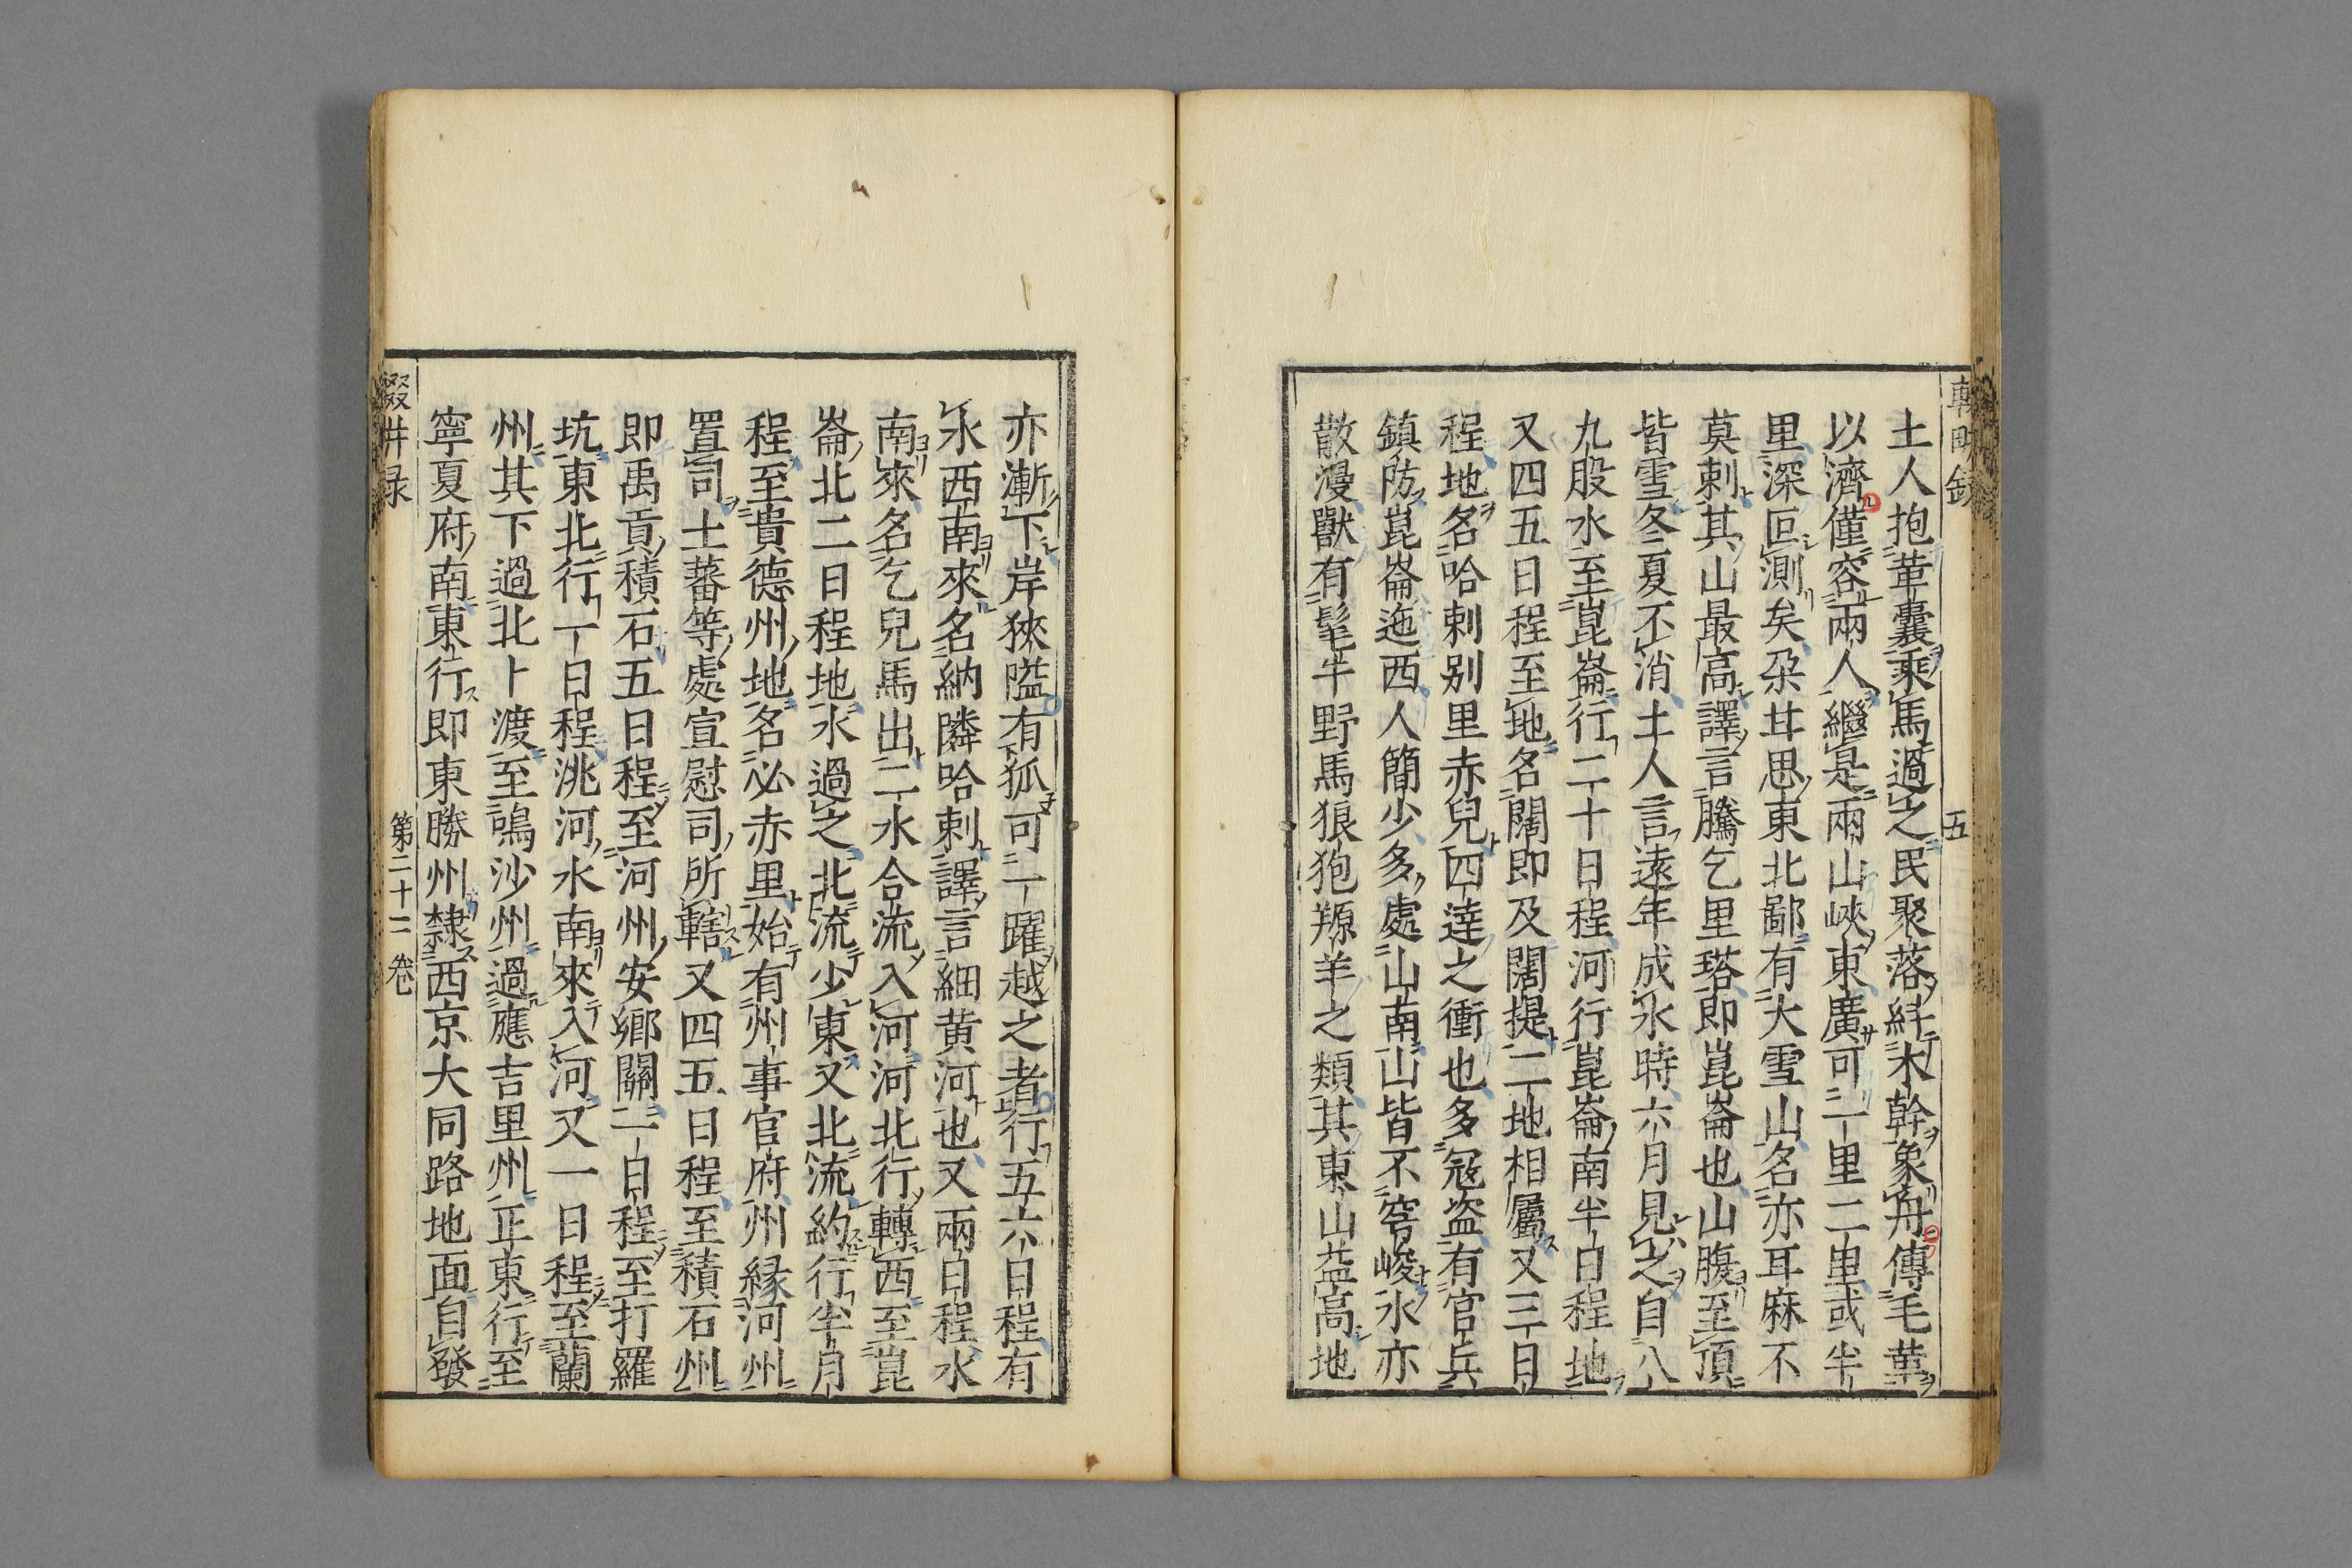 土人抱革囊乘馬過之民聚落糾木幹象舟傳毛革
以濟僅容兩人繼是兩山峽東廣可一里二里或半
里深叵測矣朶甘思東北鄙有大雪山名亦耳麻不
莫剌其山最高譯言騰乞里塔即崑崙也山腹至頂
皆雪冬夏不消土人言遠年成氷時六月見之自八
九股水至崑崙行二十日程河行崑崙南半日程地
又四五日程至地名闊即及闊提二地相屬又三日
程地名哈剌别里赤兒四達之衝也多寇盗有官兵
鎮防崑崙迤西人簡少多處山南山皆不穹峻水亦
散漫獸有髦牛野馬狼狍羱羊之類其東山益高地
五
亦漸下岸狹隘有狐可一躍越之者行五六日程有
水西南來名納隣哈剌譯言細黄河也又兩日程水
南來名乞兒馬出二水合流入河河北行轉西至崑
崙北二日程地水過之北流少東又北流約行半月
程至貴德州地名必赤里始有州事官府州縁河州
置司土蕃等處宣慰司所轄又四五日程至積石州
即禹貢積石五日程至河州安鄉關一日程至打羅
坑東北行一日程洮河水南來入河又一日程至蘭
州其下過北卜渡至鳴沙州過應吉里州正東行至
寧夏府南東行即東勝州隸西京大同路地面自發
第二十二卷